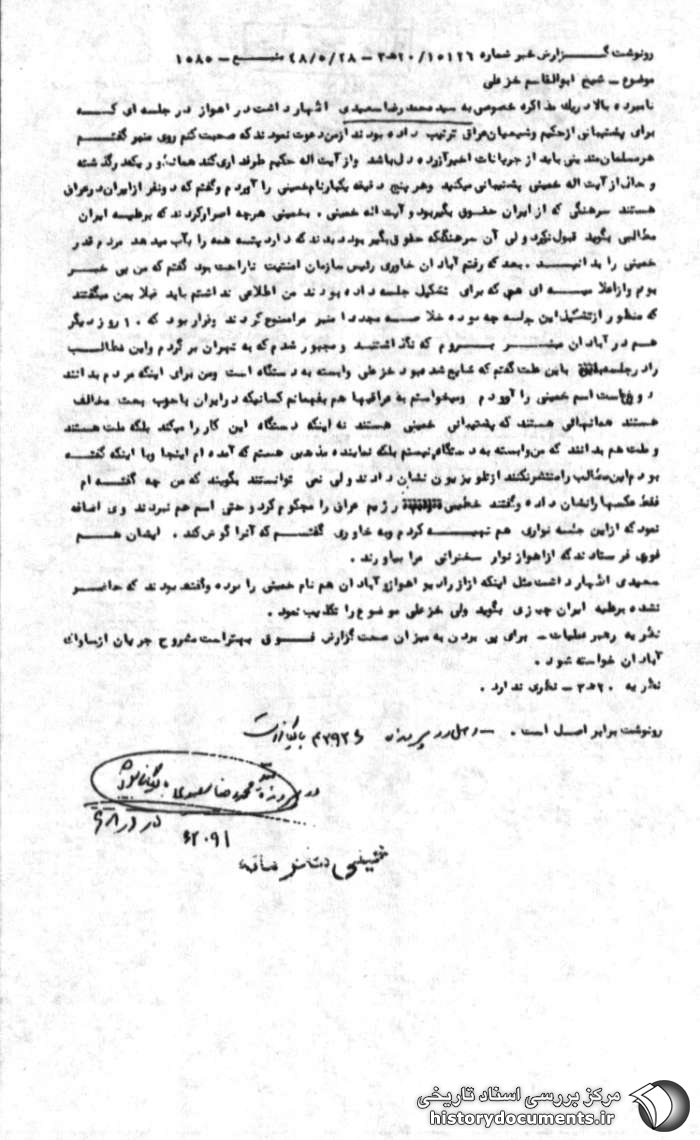 رونوشت گزارش خبر شماره ۲۰/۱۰۱۲۶ﻫ۳ – ۴۸/۵/۲۸ منبع – ۱۰۸۰
موضوع – شیخ ابوالقاسم خزعلی
نامبرده بالا در یک مذاکره خصوصی به سید محمد رضا سعیدی اظهار داشت در اهواز در جلسه ای که
برای پشتیبانی از حکیم و شیعیان عراق ترتیب داده بودند از من دعوت نمودند که صحبت کنم روی منبر گفتم
هر مسلمان متدینی باید از جریانات اخیر آزرده دل باشد و از آیت اله حکیم طرفداری کند همانطور یکه در گذشته
و حال از آیت اله خمینی پشتیبانی میکنید و هر پنج دقیقه یکبار نام خمینی را آوردم و گفتم که دو نفر از ایران در عراق
هستند سرهنگی که از ایران حقوق بگیر بود و آیت اله خمینی . بخمینی هر چه اصرار کردند که بر علیه ایران
مطالبی بگوید قبول نکرد ولی آن سرهنگ که حقوق بگیر بود دیدند که دارد پته همه را بآب میدهد مردم قدر
خمینی را بدانید . بعد که رفتم آبادان خاوری رئیس سازمان امنیت ناراحت بود گفتم که من بی خبر
بودم و از اعلامیه ای هم که برای تشکیل جلسه داده بودند من اطلاعی نداشتم باید قبلا بمن میگفتند
که منظور از تشکیل این جلسه چه بوده خلاصه مجددا منبر مرا ممنوع کردند و قرار بود که ۱۰ روز دیگر
هم در آبادان منبر بروم که نگذاشتند و مجبور شدم که به تهران برگردم و این مطالب
را در جلسه باین علت گفتم که شایع شده بود خزعلی وابسته به دستگاه است و من برای اینکه مردم بدانند
اسم خمینی را آوردم و میخواستم به عراقیها هم بفهمانم کسانیکه در ایران با حزب بعث مخالف
هستند همانهائی هستند که پشتیبانی خمینی هستند نه اینکه دستگاه این کار را میکند بلکه ملت هستند
و ملت هم بدانند که من وابسته به دستگاه نیستم بلکه نماینده مذهبی هستم که آمده ام اینجا و با اینکه گفته
بودم این مطالب را منتشر نکنند از تلویزیون نشان دادند ولی نمی توانستند بگویند که من چه گفته ام
فقط عکسها را نشان داده و گفتند خطیبی رژیم عراق را محکوم کرد و حتی اسم هم نبردند وی اضافه
نمود که از این جلسه نواری هم تهیه کردم و به خاوری گفتم که آنرا گوش کند . ایشان هم
فوری فرستادند که از اهواز نوار سخنرانی مرا بیاورند .
سعیدی اظهار داشت مثل اینکه از رادیو اهواز و آبادان هم نام خمینی را برده و گفته بودند که حاضر
نشده بر علیه ایران چیزی بگوید ولی خزعلی موضوع را تکذیب نمود .
نظریه رهبر عملیات – برای پی بردن به میزان صحت گزارش فوق بهتر است مشروح جریان از ساواک
آبادان خواسته شود .
نظریه ۲۰ﻫ۳ – نظری ندارد .
رونوشت برابر اصل است . – در پرونده بایگانی
در پرونده سید محمد رضا سعیدی بایگانی شود
۶۲۰۹۱
مرکز بررسی اسناد تاریخی
historydocuments.ir